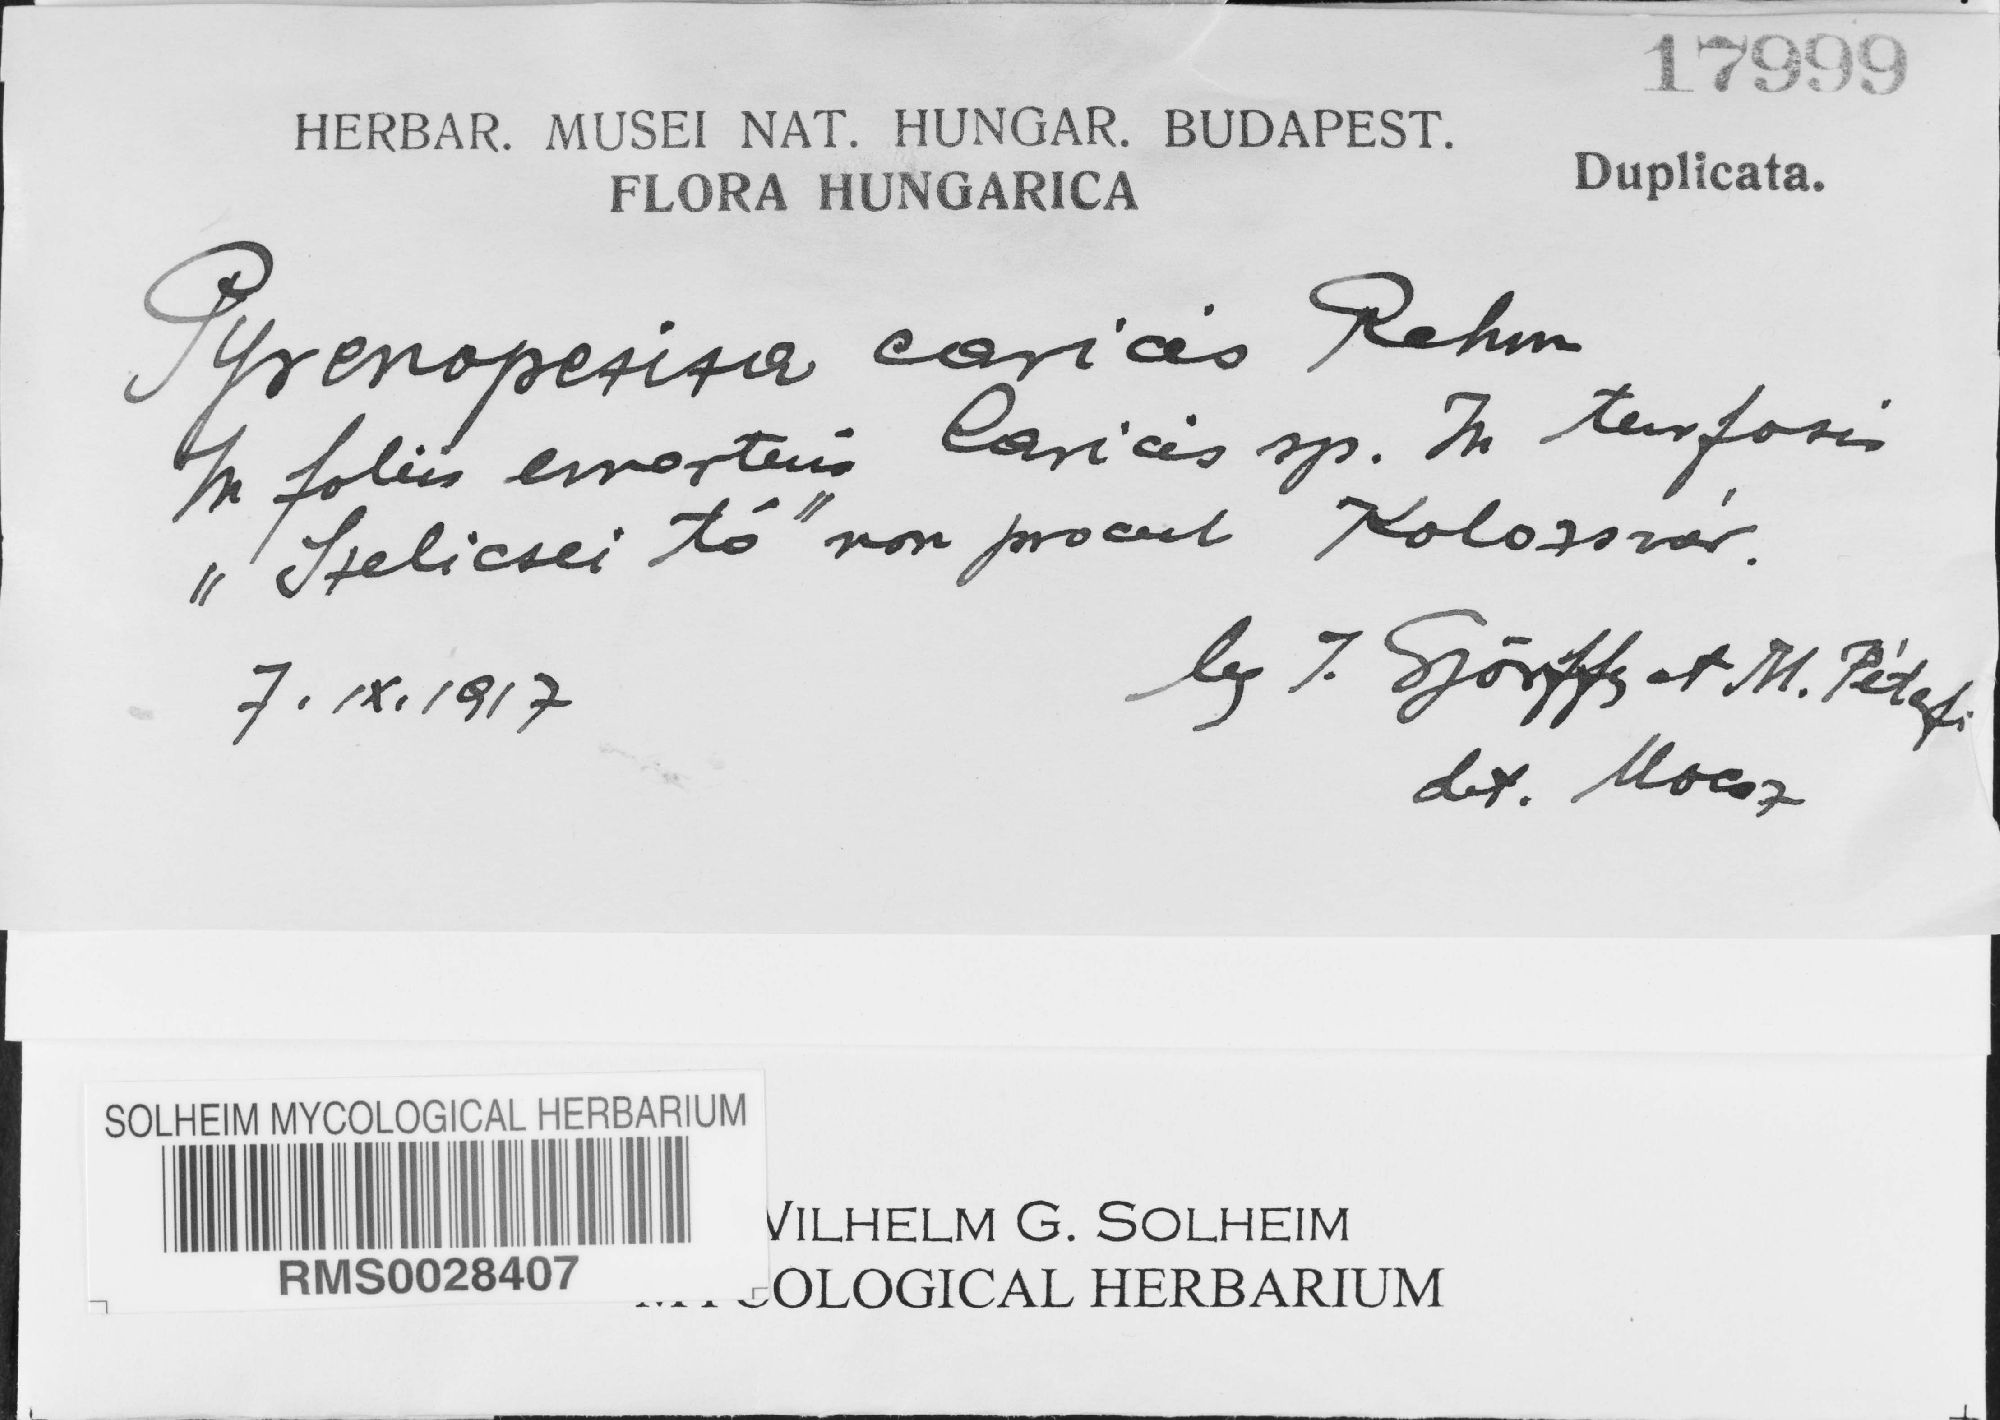 17999
HERBAR. MUSEI NAT. HUNGAR. BUDAPEST.
Duplicata.
FLORA HUNGARICA
Pyrenopeziza caricis Rehm
In foliis emortuis Caricis sp. In turfosis
„Szelicsei tó" non procul Kolozsvár.
7. IX. 1917
leg I. Györffy et M. Péterfi
det. Moesz
SOLHEIM MYCOLOGICAL HERBARIUM
RMS0028407
WILHELM G. SOLHEIM
MYCOLOGICAL HERBARIUM